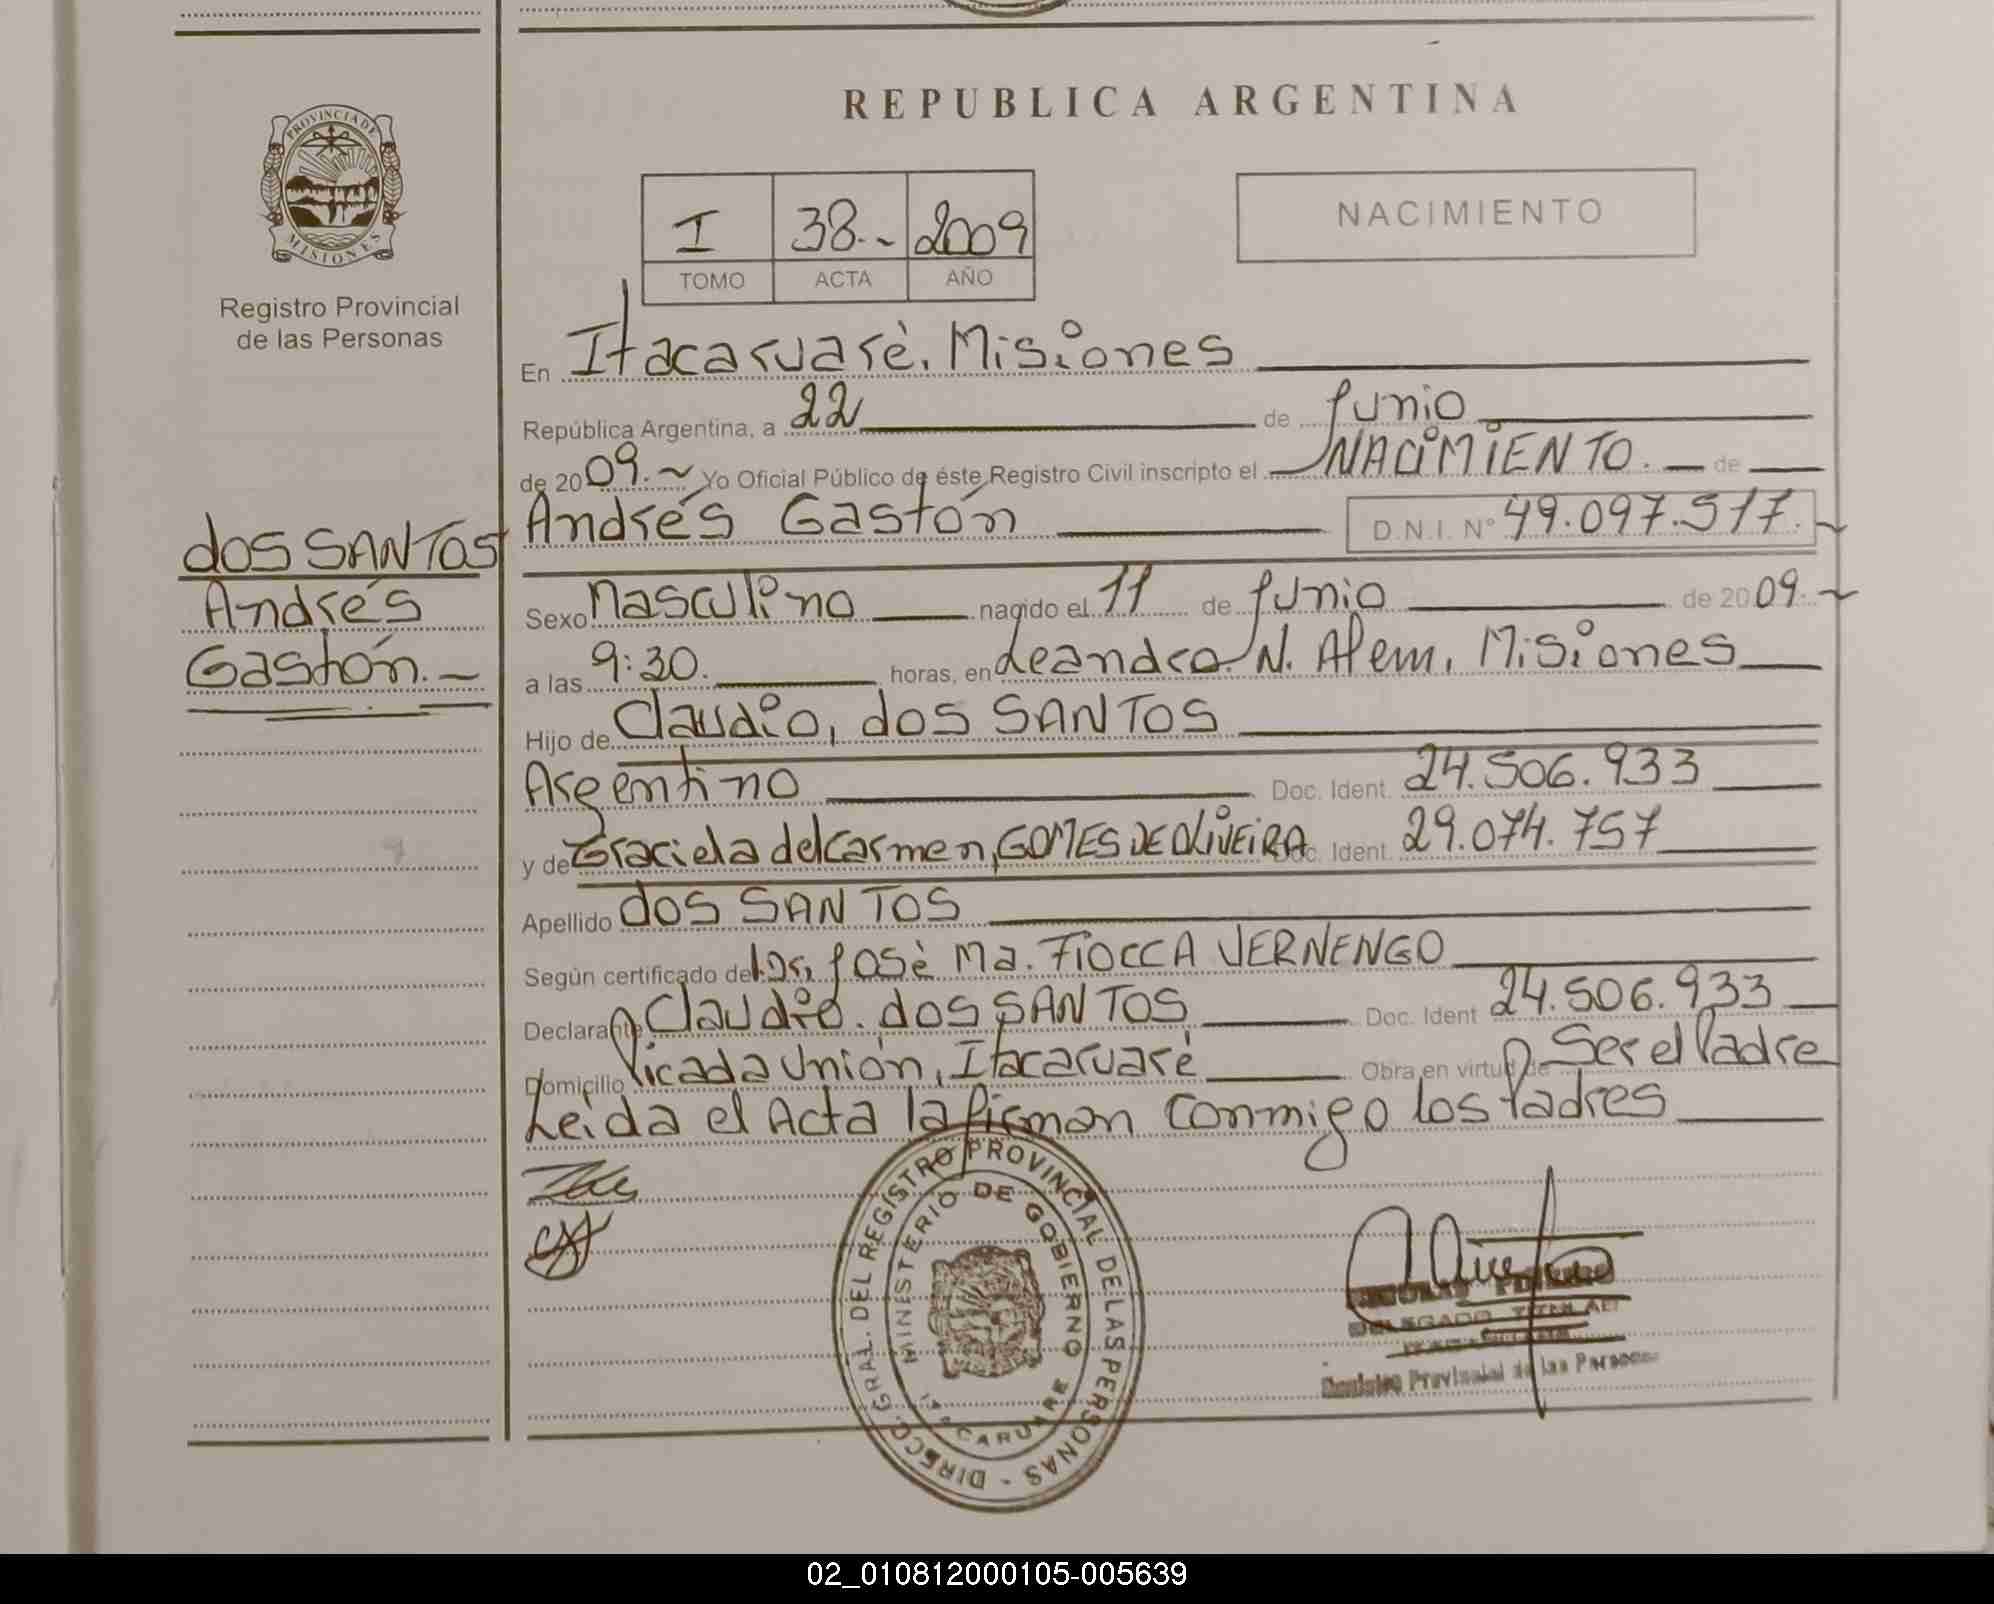 REPUBLICA ARGENTINA
PROVINCIA DE MISIONES
Registro Provincial
de las Personas
I 38.~ 2009
TOMO ACTA AÑO
NACIMIENTO
En Itacaruarè, Misiones
República Argentina, a 22 de Junio
de 2009.~ Yo Oficial Público de éste Registro Civil inscripto el NACIMIENTO. de
dos SANTOS
Andrés
Gastón.~
Andrés Gastón D.N.I. N° 49.097.517.~
Sexo Masculino nacido el 11 de Junio de 2009.~
a las 9:30. horas, en Leandro. N. Alem, Misiones
Hijo de Claudio, dos SANTOS
Argentino Doc. Ident. 24.506.933
y de Graciela del Carmen, GOMES DE OLIVEIRA Doc. Ident. 29.074.757
Apellido dos SANTOS
Según certificado del Dr, José Ma. FIOCCA VERNENGO
Declarante Claudio. dos SANTOS Doc. Ident 24.506.933
Domicilio Picada Unión, Itacaruarè Obra en virtud de Ser el Padre
Leida el Acta la firman conmigo los Padres
DIRECC. GRAL. DEL REGISTRO PROVINCIAL DE LAS PERSONAS -
MINISTERIO DE GOBIERNO
DELEGADO TITULAR
Provincial de las Personas
02_010812000105-005639